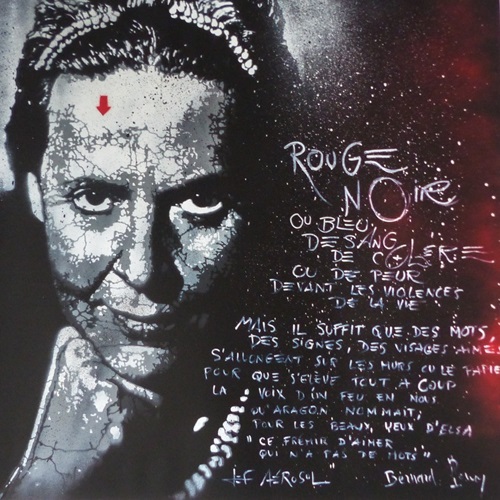 ROUGE
NOIRE
OU BLEU
DE SANG
DE COLÈRE
OU DE PEUR
DEVANT LES VIOLENCES
DE LA VIE
MAIS IL SUFFIT QUE DES MOTS,
DES SIGNES, DES VISAGES AIMES
S'ALLONGENT SUR LES MURS OU LE PAPIE
POUR QUE S'ELÈVE TOUT A COUP
LA VOIX D'UN FEU EN NOUS
QU'ARAGON NOMMAIT,
POUR LES BEAUX YEUX D'ELSA
"CE FRÉMIR D'AIMER
QUI N'A PAS DE MOTS"
JEF AÉROSOL Bernard